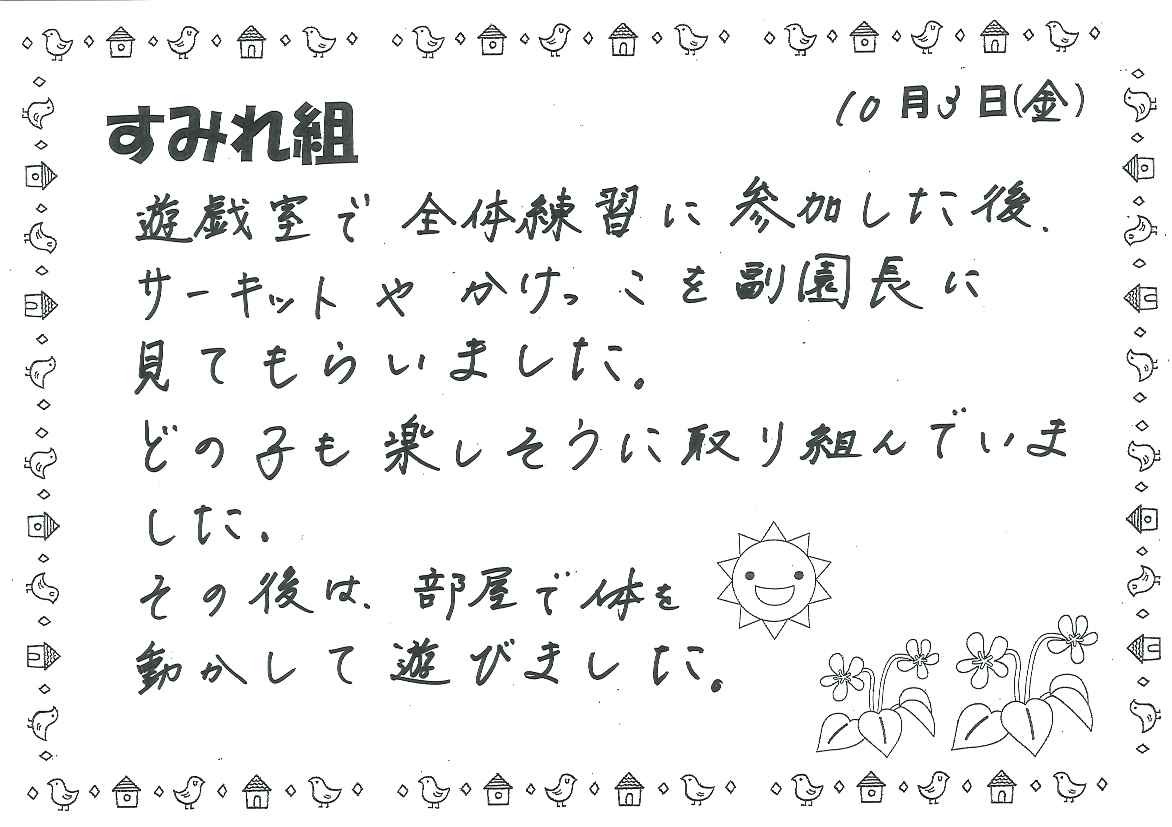 10月3日(金)
すみれ組
遊戯室で全体練習に参加した後、
サーキットやかけっこを副園長に
見てもらいました。
どの子も楽しそうに取り組んでいま
した。
その後は、部屋で体を
動かして遊びました。